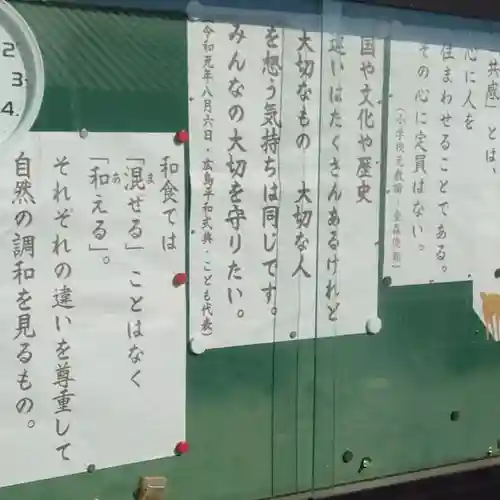 共感」とは、
心に人を
住まわせることである。
その心に定員はない。
国や文化や歴史
違いはたくさんあるけれど
大切なもの　大切な人
を想う気持ちは同じです。
みんなの大切を守りたい。
令和元年八月六日・広島平和式典・こども代表）
和食では
「混ぜる」ことはなく
「和える」。
それぞれの違いを尊重して
自然の調和を見るもの。
2
3
4